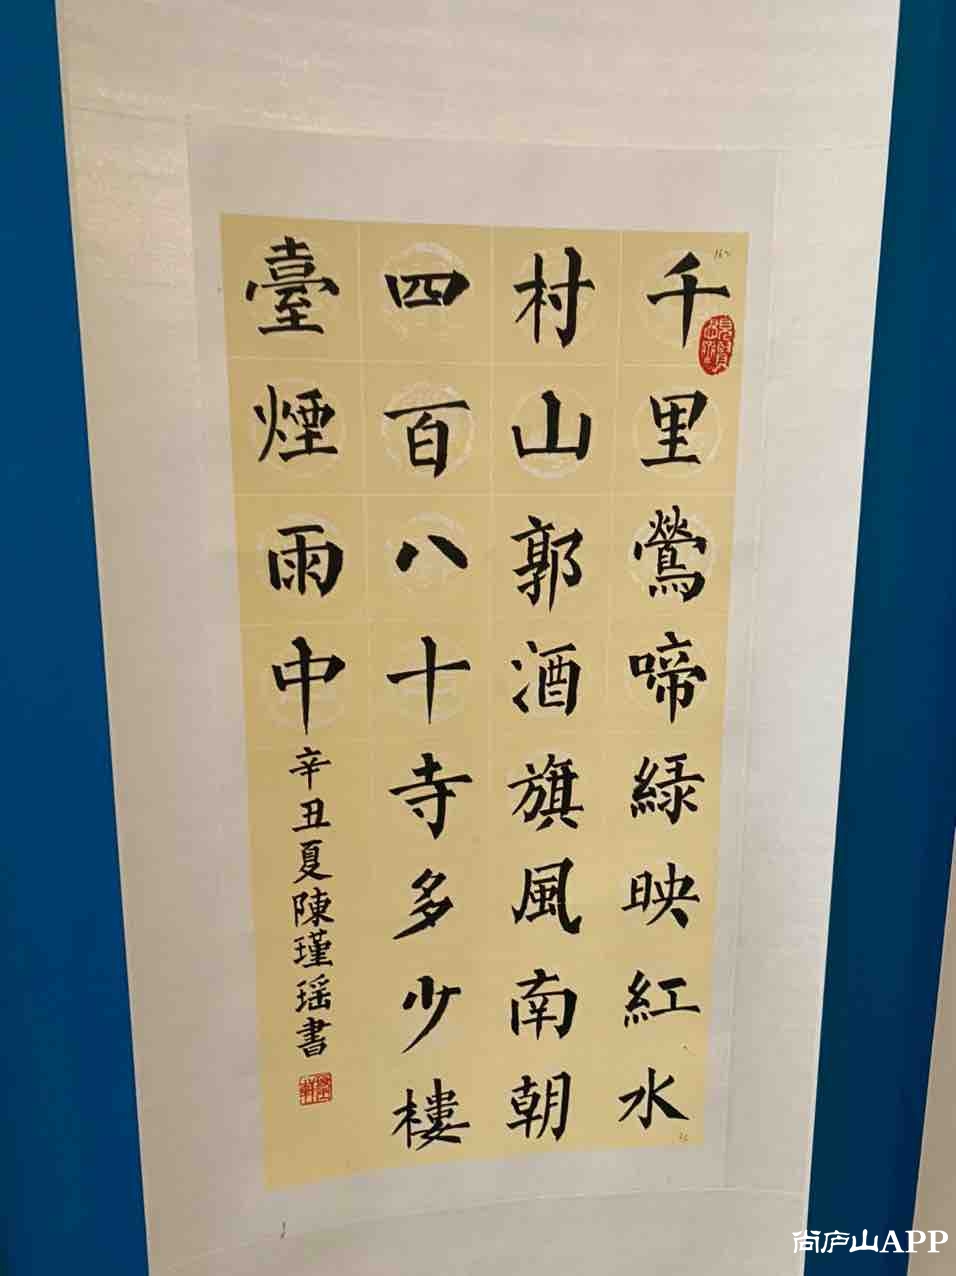 千里鶯啼緑映紅水
村山郭酒旗風南朝
四百八十寺多少樓
臺煙雨中
辛丑夏陳瑾瑶書
尚庐山APP